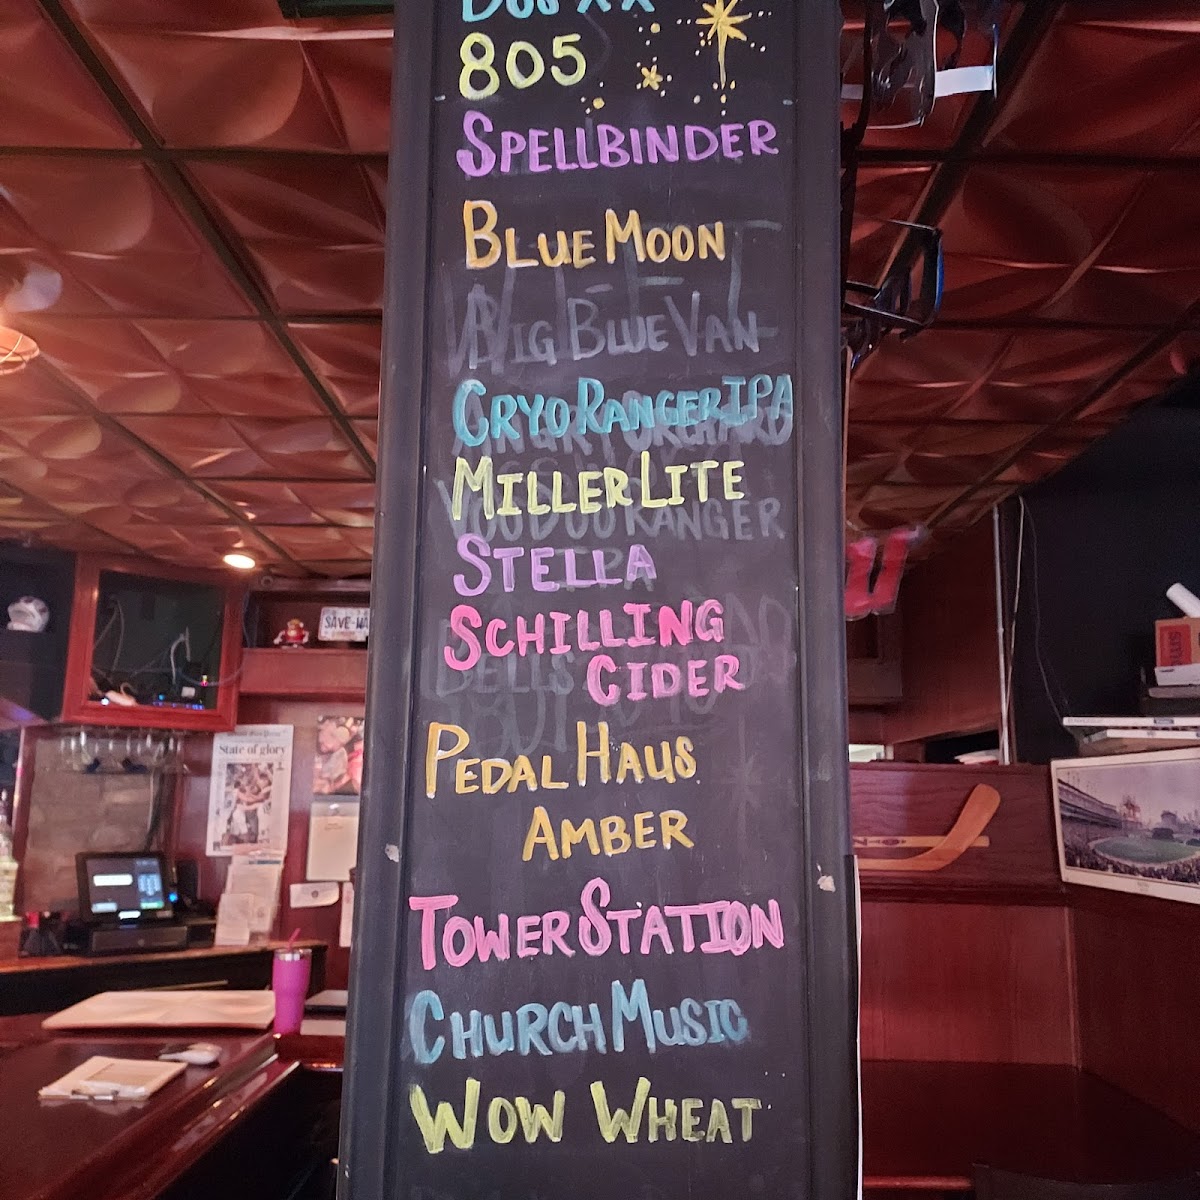 Dos XX
805
SPELLBINDER
BLUE MOON
BIG BLUE VAN
CRYO RANGER IPA
MILLER LITE
VOODOO RANGER
STELLA
SCHILLING
CIDER
PEDAL HAUS
AMBER
TOWER STATION
CHURCH MUSIC
WOW WHEAT
State of glory
SAVE-WA